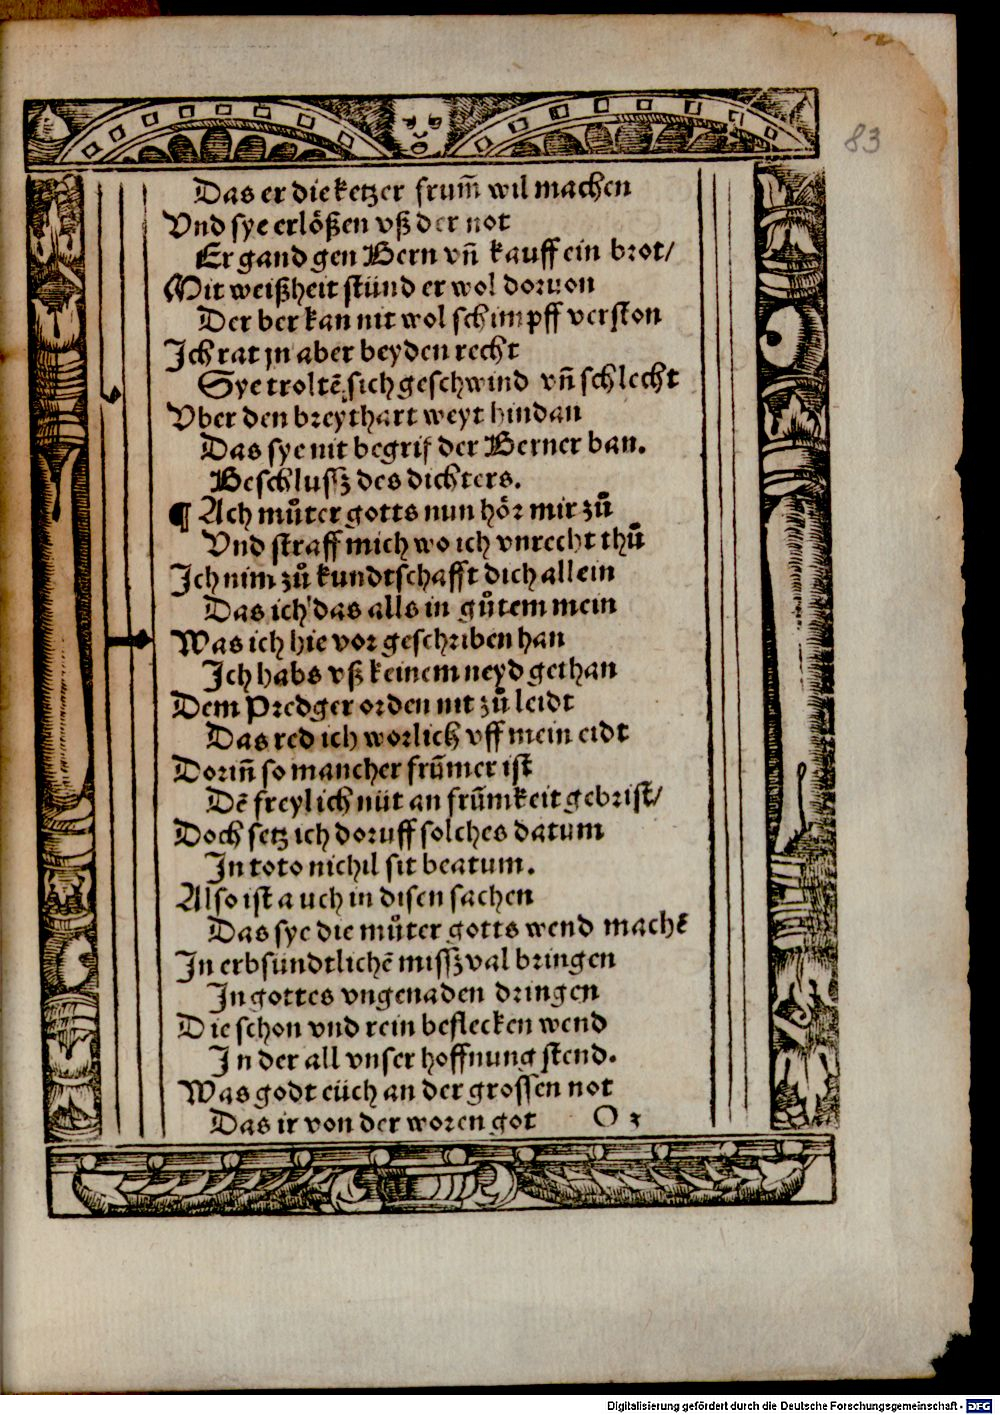 83
Das er die ketzer frum̄ wil machen
Vnd sye erlößen vß der not
Er gand gen Bern vn̄ kauff ein brot/
Mit weißheit stünd er wol doruon
Der ber kan nit wol schimpff verston
Ich rat jn aber beyden recht
Sye troltē sich geschwind vn̄ schlecht
Vber den breythart weyt hindan
Das sye nit begrif der Berner ban.
Beschlussz des dichters.
¶ Ach můter gotts nun hör mir zů
Vnd straff mich wo ich vnrecht thů
Ich nim zů kundtschafft dich allein
Das ich das alls in gůtem mein
Was ich hie vor geschriben han
Ich habs vß keinem neyd gethan
Dem Predger orden nit zů leidt
Das red ich worlich vff mein eidt
Dorin̄ so mancher frūmer ist
Dē freylich nüt an frūmkeit gebrist/
Doch setz ich doruff solches datum
In toto nichil sit beatum.
Also ist auch in disen sachen
Das sye die můter gotts wend machē
In erbsündtlichē missz val bringen
In gottes vngenaden dringen
Die schon vnd rein beflecken wend
In der all vnser hoffnung stend.
Was godt eüch an der grossen not
Das ir von der woren got O 3
Digitalisierung gefördert durch die Deutsche Forschungsgemeinschaft - DFG